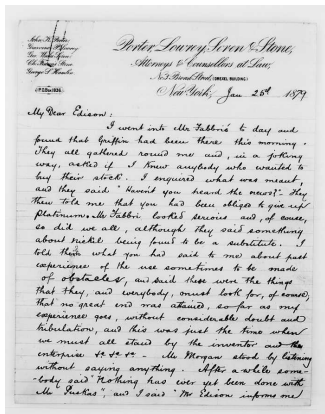 Porter, Lowrey, Soren & Stone,
Attorneys & Counsellors at Law,
No 3 Broad Street, (DREXEL BUILDING.)
New York, Jan 25th 1879
My Dear Edison:
I went into Mr Fabbri's to day and
found that Griffin had been there this morning.
They all gathered round me and, in a joking
way, asked if I knew anybody who wanted to
buy their stock. I enquired what was meant,
and they said "Haven't you heard the news?" They
then told me that you had been obliged to give up
Platinum. Mr Fabbri looked serious and, of course,
so did we all, although they said something
about nickel being found to be a substitute. I
told them what you had said to me about past
experience of the use sometimes to be made
of obstacles, and said these were the things
that they, and everybody, must look for, of course;
that no great end was attained, so far as my
experience goes, without considerable doubt and
tribulation, and this was just the time when
we must all stand by the inventor and the
enterprise &c &c &c - Mr Morgan stood by listening
without saying anything. After a while some-
body said "Nothing has ever yet been done with
Mr Puskas", and I said "Mr Edison informs me